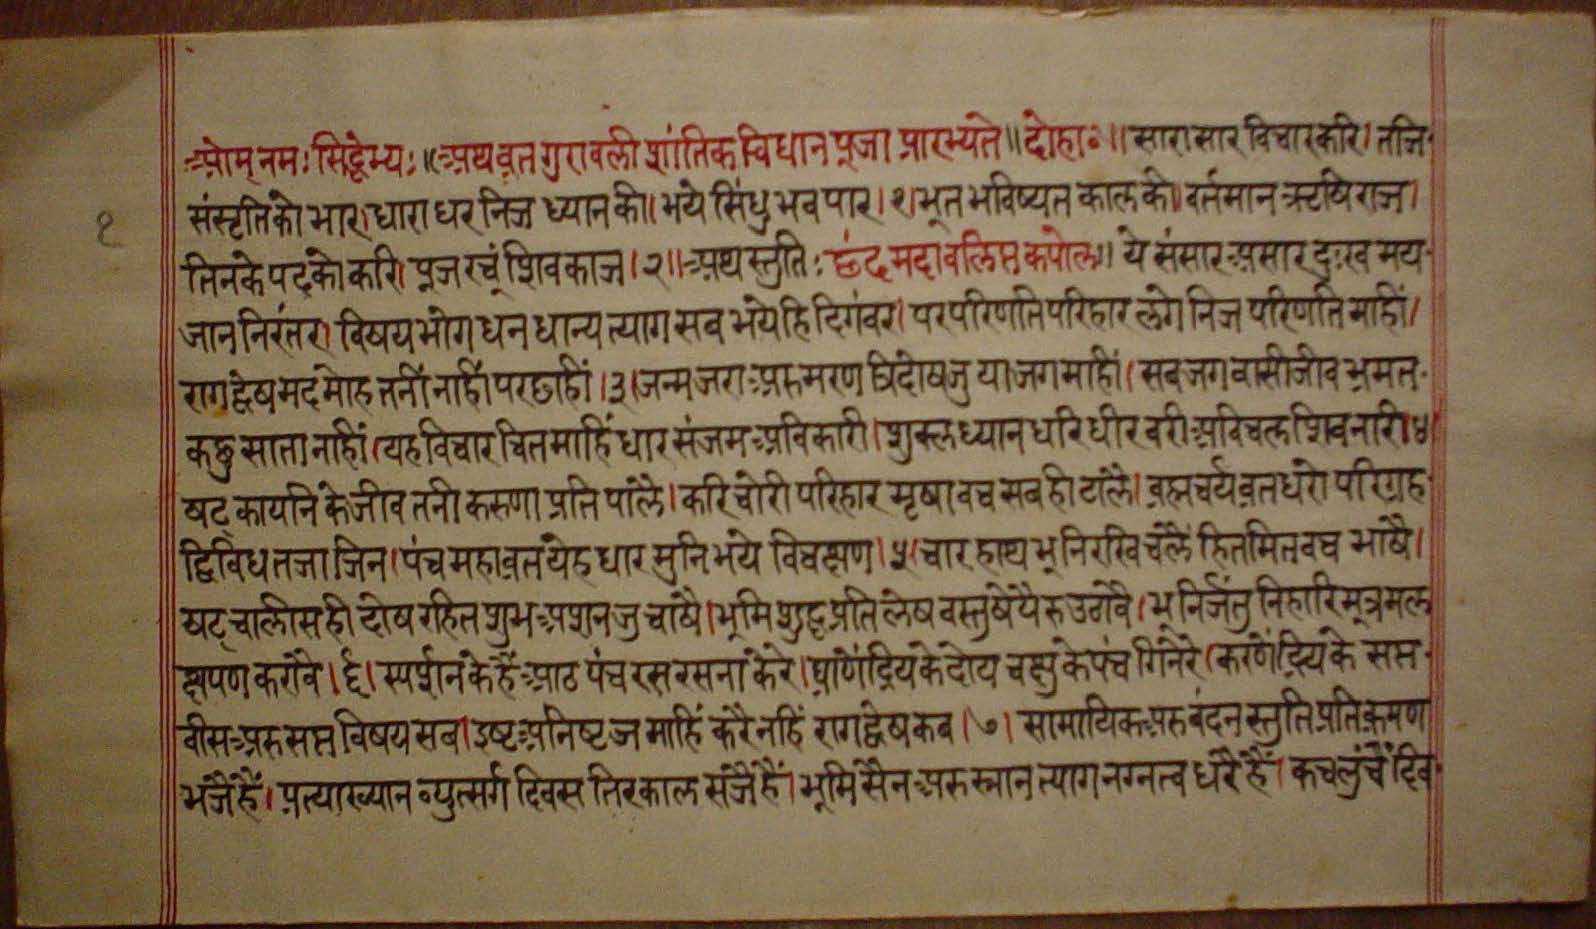 ओम् नमः सिद्धेभ्यः॥ अथ वृत गुरावली शांतिक विधान पूजा प्रारभ्यते॥ दोहा॰॥ सारासार विचार करि। तजि
संसृति को भार। धारा धर निज ध्यान की। भये सिंधु भव पार। १। भूत भविष्यत काल की। वर्तमान ऋषिराज।
१
तिनके पद को करि। पूज रचूं शिव काज। २॥ अथ स्तुतिः छंद मदावलिप्त कपोल॥ ये संसार असार दुःख मय
जान निरंतर। विषय भोग धन धान्य त्याग सब भये हि दिगंबर। पर परिणति परिहार लगे निज परिणति माहीं।
राग द्वेष मद मोह तनीं नाहीं परछाहीं। ३। जन्म जरा अरु मरण त्रिदोष जु या जग माहीं। सब जग वासी जीव भ्रमत
कछु साता नाहीं। यह विचार चित माहिं धार संजम अविकारी। शुक्ल ध्यान धरि धीर वरी अविचल शिव नारी। ४।
षट् कायनि के जीव तनी करुणा प्रति पालै। करि चोरी परिहार मृषा वच सब ही टालै। ब्रह्मचर्य व्रत धरो परिग्रह
द्विविध तजा जिन। पंच महाव्रत येह धार मुनि भये विचक्षण। ५। चार हाथ भू निरखि चलैं हित मित वच भाषै।
षट् चालीस ही दोष रहित शुभ अशन जु चाषै। भूमि शुद्ध प्रति लेष वस्तु षेयै रु उठावै। भू निर्जंतु निहारि मूत्र मल
क्षपण करावै। ६। स्पर्शन के हैं आठ पंच रस रसना केरे। घ्राणेंद्रिय के दोय चक्षु के पंच गिनेरे। करणेंद्रिय के सप्त
वीस अरु सप्त विषय सब। इष्ट अनिष्ट ज माहिं करै नहिं राग द्वेष कब। ७। सामायिक अरु वंदन स्तुति प्रतिक्रमण
भजै हैं। प्रत्याख्यान व्युत्सर्ग दिवस तिरकाल संजै हैं। भूमि सैन अरु स्नान त्याग नग्नत्व धरै हैं। कचलुंचैं दिव